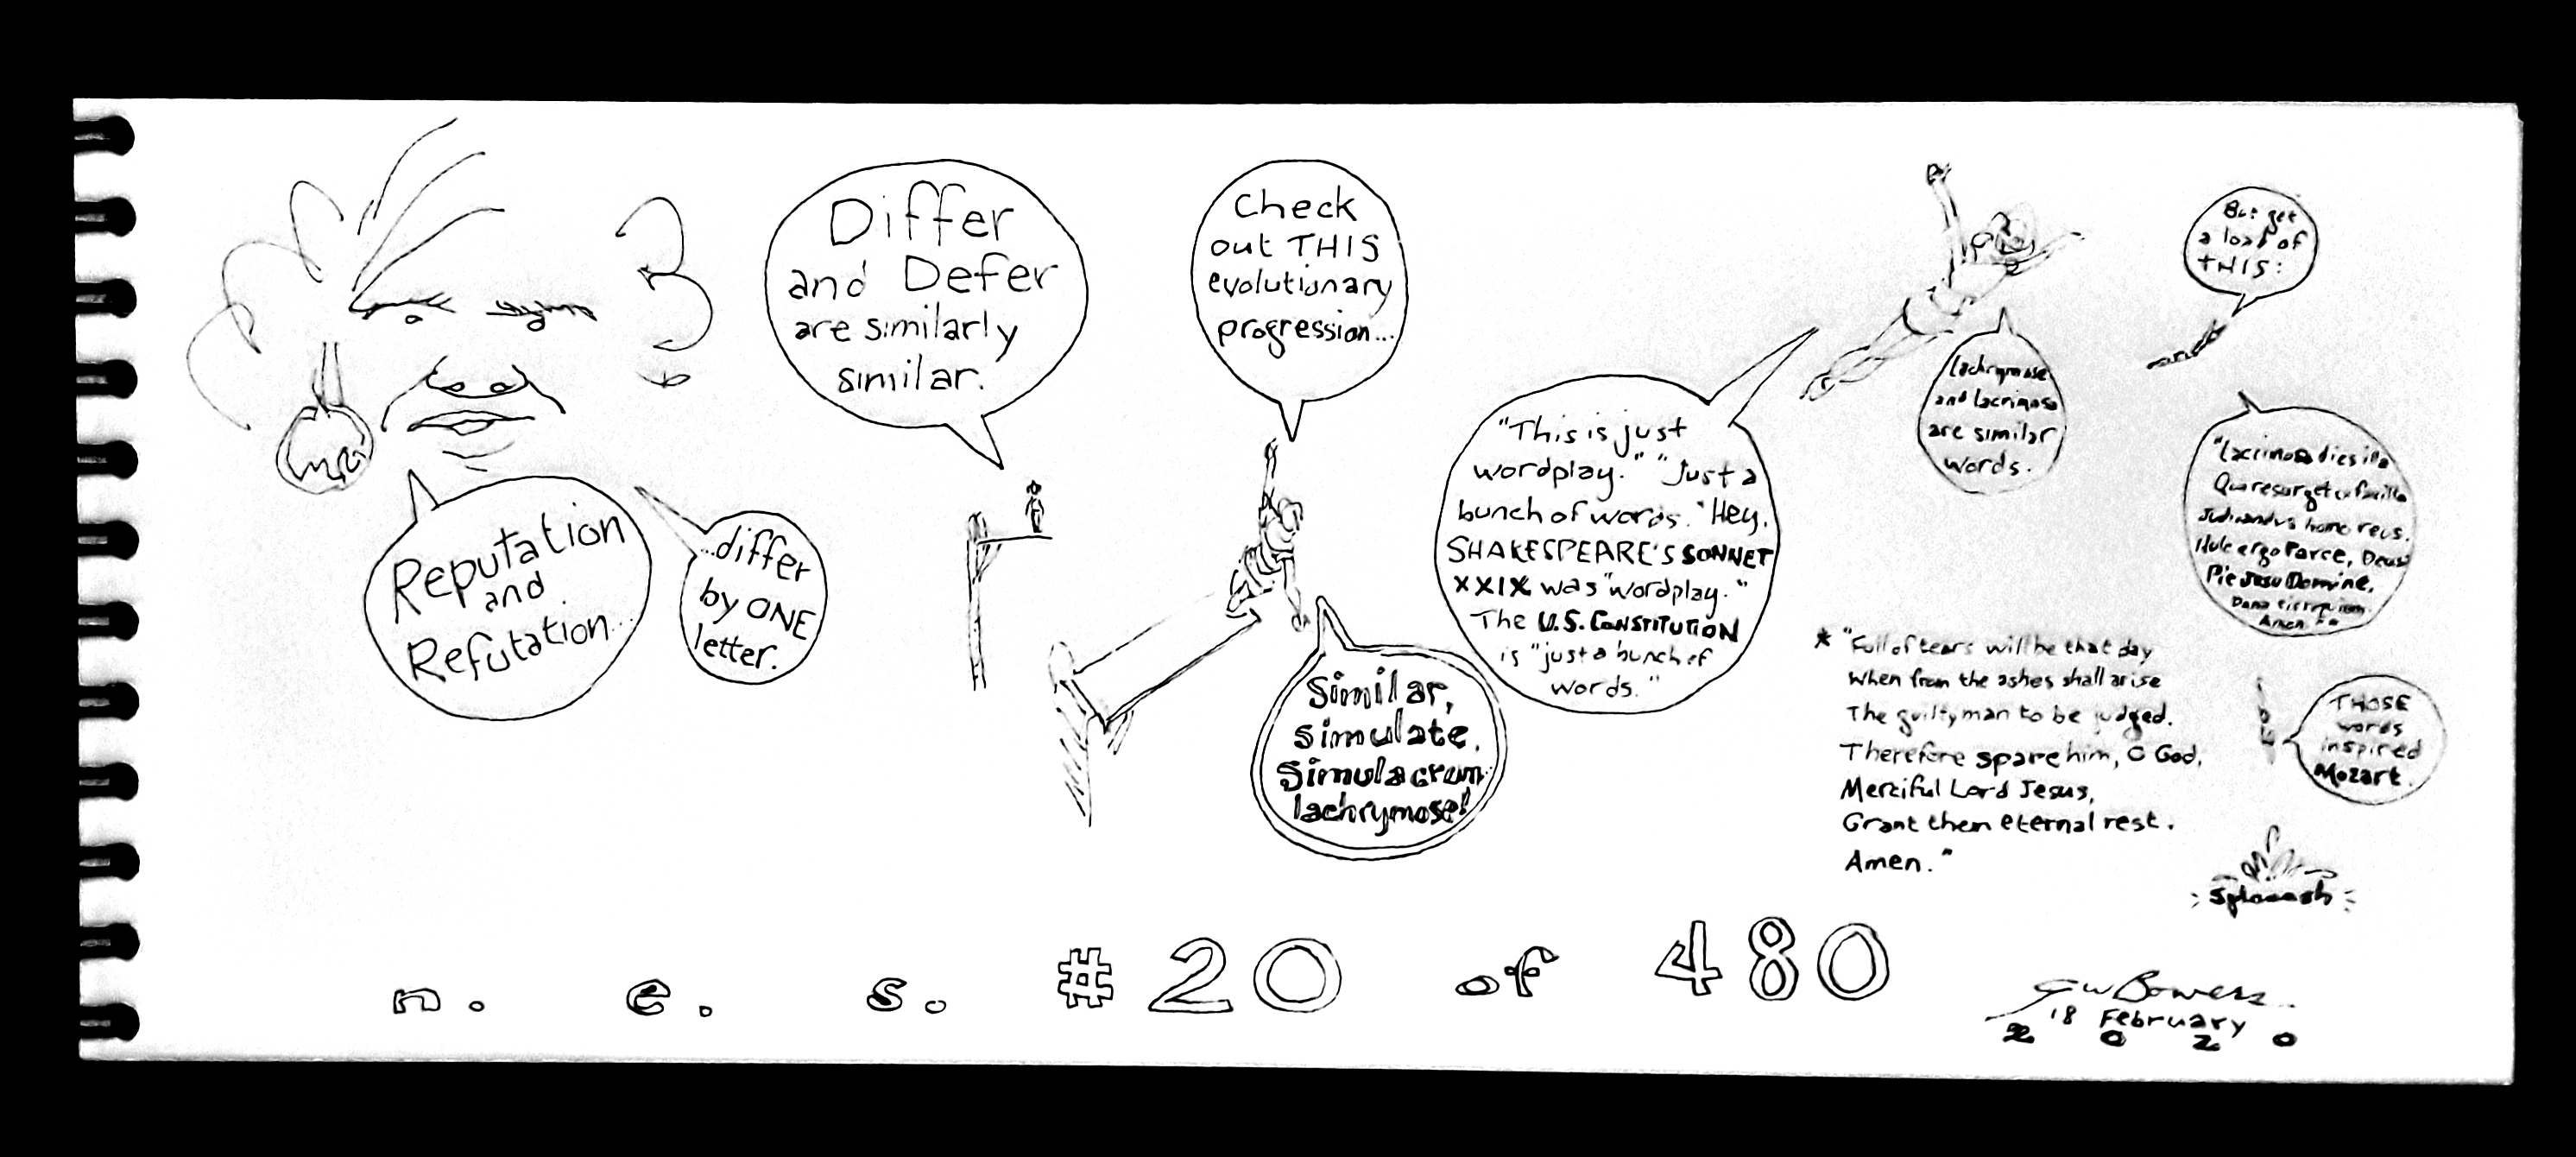 Reputation
and
Refutation...
...differ
by ONE
letter.
Differ
and Defer
are similarly
similar.
Check
out THIS
evolutionary
progression...
Similar,
simulate,
simulacrum
lachrymose!
"This is just
wordplay." "Just a
bunch of words." Hey,
SHAKESPEARE'S SONNET
XXIX was "wordplay."
The U.S. CONSTITUTION
is "just a bunch of
words."
Lachrymose
and lacrimosa
are similar
words.
But get
a load of
THIS:
"Lacrimosa dies illa
Qua resurget ex favilla
Judicandus homo reus.
Huic ergo Parce, Deus
Pie Jesu Domine,
Dona eis requiem.
Amen.
* "Full of tears will be that day
When from the ashes shall arise
The guilty man to be judged.
Therefore spare him, O God,
Merciful Lord Jesus,
Grant them eternal rest.
Amen."
THOSE
words
inspired
Mozart.
Sploooosh
n. e. s. #20 of 480
GW Bowers
'18 February
2020